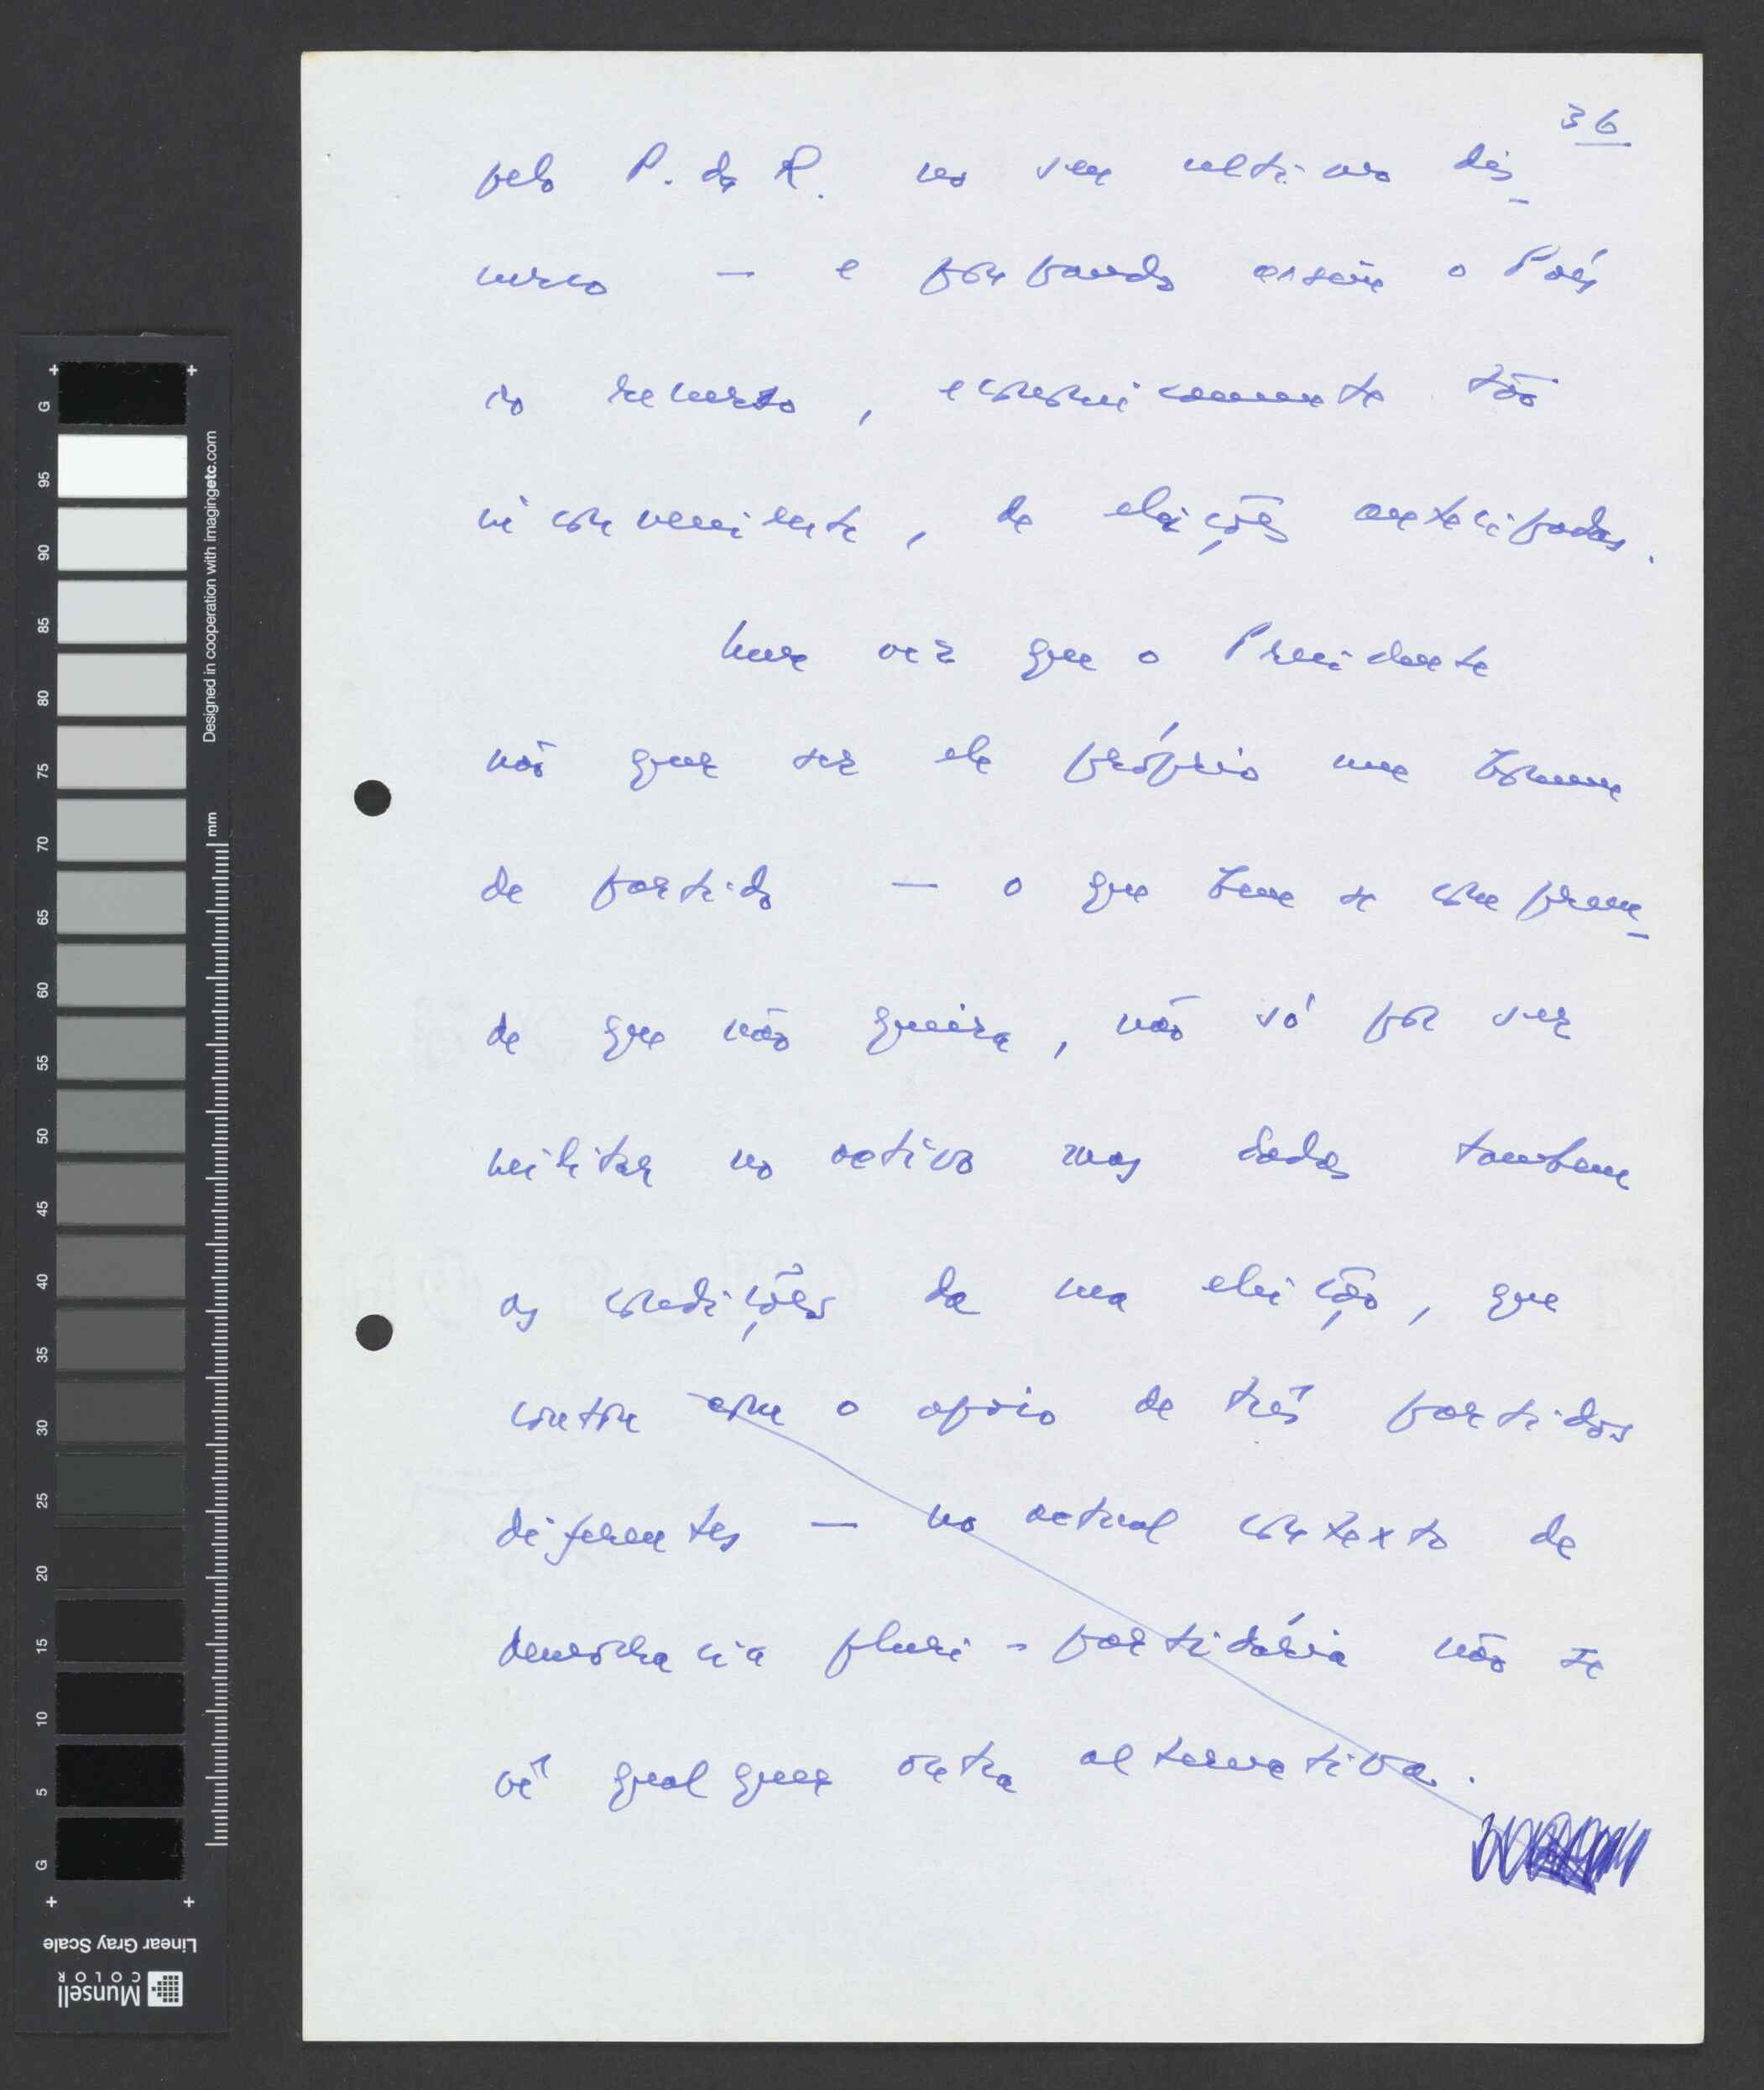 36
pelo P. da R. no seu ultimo dis-
curso — e poupando assim o País
ao recurso, economicamente tão
inconveniente, de eleições antecipadas.
Uma vez que o Presidente
não quer ser ele próprio um homem
de partido — o que bem se compreen-
de que não queira, não só por ser
militar no activo mas dadas tambem
as condições da sua eleição, que
contou com o apoio de três partidos
diferentes — no actual contexto de
democracia pluri-partidária não se
vê qualquer outra alternativa.
G 95 90 85 80 75 70 65 60 55 50 45 40 35 30 25 20 15 10 5 G
Designed in cooperation with imagingetc.com
mm
Linear Gray Scale
Munsell
COLOR